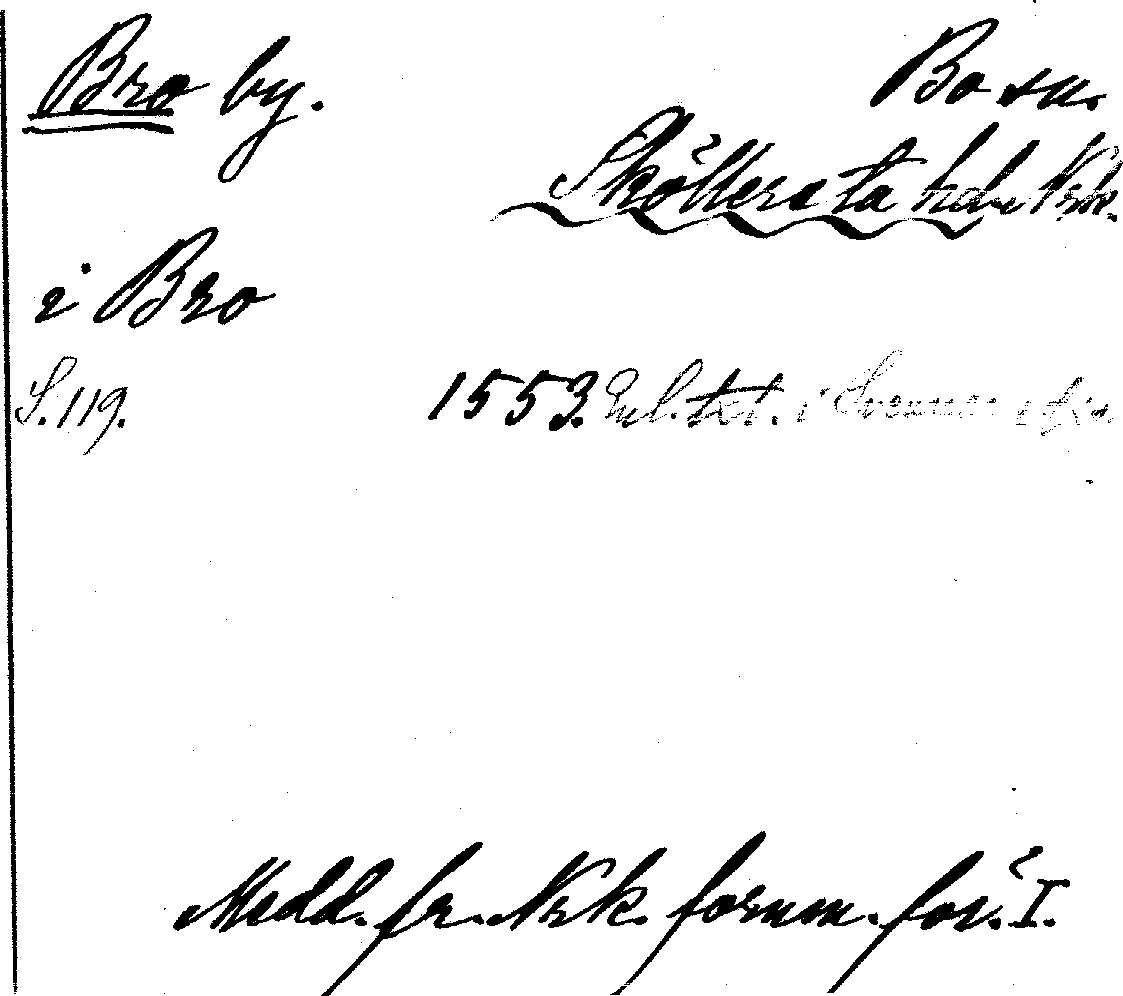 Bro by. Bo sn.
Sköllersta hd. Nrk.
i Bro
S. 119. 1553. Enl. txt. i Svenska
Medd. fr. Nrk. fornm. för. I.